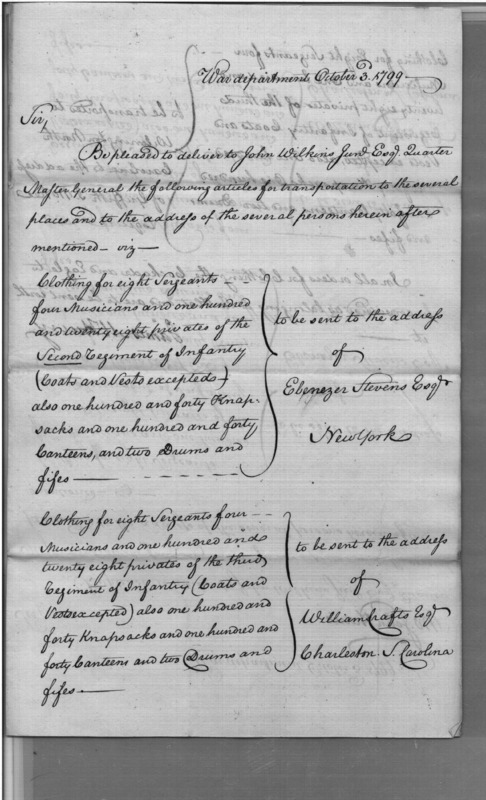 War department October 3. 1799
Sir,
Be pleased to deliver to John Wilkins Junr Esqr. Quarter
Master General the following articles for transportation to the several
places and to the address of the several persons herein after
mentioned - viz -
Clothing for eight Sergeants
four Musicians and one hundred
and twenty eight privates of the
Second Regiment of Infantry
(Coats and Vests excepted)
also one hundred and forty Knap-
sacks and one hundred and forty
Canteens, and two Drums and
fifes
to be sent to the address
of
Ebenezer Stevens Esqr
New York
Clothing for eight Sergeants four
Musicians and one hundred and
twenty eight privates of the third
Regiment of Infantry (Coats and
Vests excepted) also one hundred and
forty Knapsacks and one hundred and
forty Canteens and two Drums and
fifes.
to be sent to the address
of
William Crafts Esqr
Charleston. S. Carolina